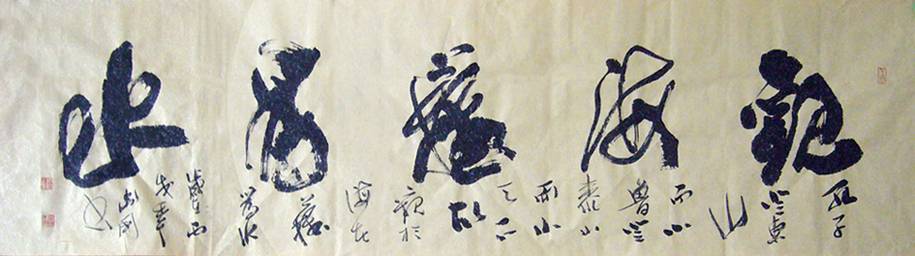 觀海難為水
孔子
登東
山
而小
魯登
泰山
而小
天下
故
觀於
海者
難
為水